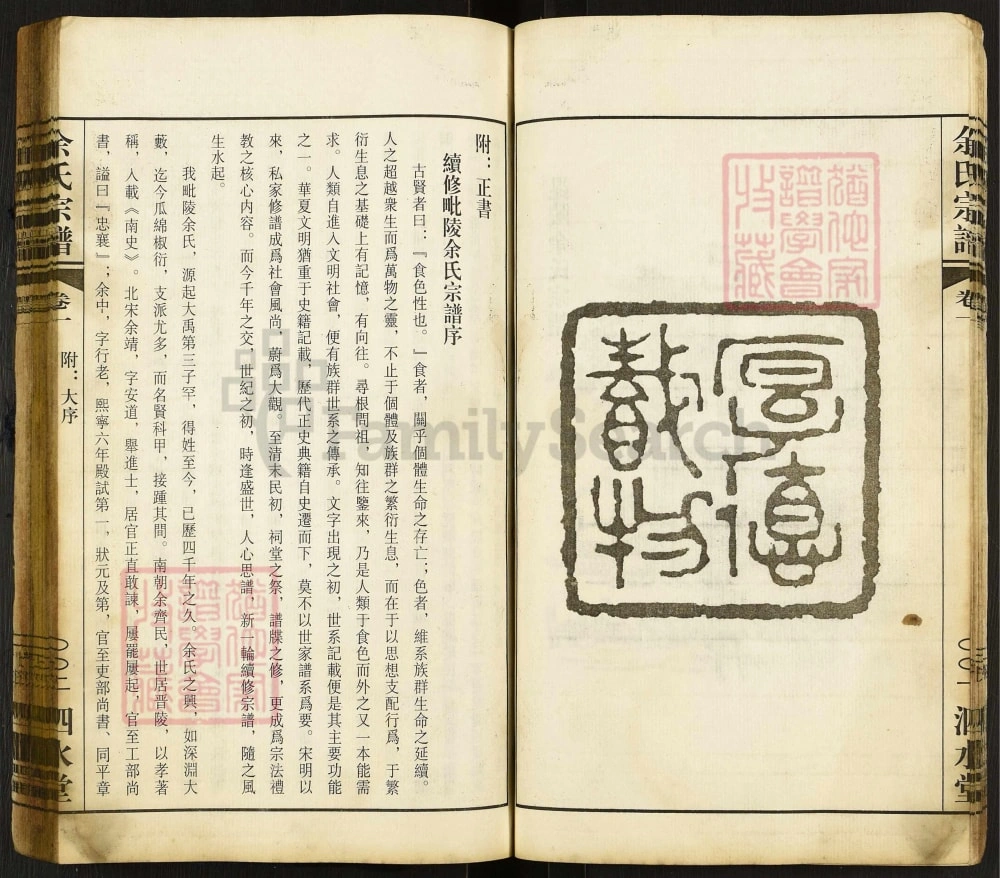 余氏宗譜
卷一
泗水堂
厚德
載物
猶他家
譜學會
收藏
附：正書
續修毗陵余氏宗譜序
古賢者曰：『食色性也。』食者，關乎個體生命之存亡；色者，維系族群生命之延續。
人之超越衆生而爲萬物之靈，不止于個體及族群之繁衍生息，而在于以思想支配行爲，于繁
衍生息之基礎上有記憶，有向往。尋根問祖，知往鑒來，乃是人類于食色而外之又一本能需
求。人類自進入文明社會，便有族群世系之傳承。文字出現之初，世系記載便是其主要功能
之一。華夏文明猶重于史籍記載，歷代正史典籍自史遷而下，莫不以世家譜系爲要。宋明以
來，私家修譜成爲社會風尚，蔚爲大觀。至清末民初，祠堂之祭，譜牒之修，更成爲宗法禮
教之核心内容。而今千年之交，世紀之初，時逢盛世，人心思譜，新一輪續修宗譜，隨之風
生水起。
我毗陵余氏，源起大禹第三子罕，得姓至今，已歷四千年之久。余氏之興，如深淵大
藪，迄今瓜綿椒衍，支派尤多，而名賢科甲，接踵其間。南朝余齊民，世居晋陵，以孝著
稱，人載《南史》。北宋余靖，字安道，舉進士，居官正直敢諫，屢罷屢起，官至工部尚
書，謚曰『忠襄』；余中，字行老，熙寧六年殿試第一，狀元及第，官至吏部尚書、同平章
猶他家
譜學會
收藏
余氏宗譜
卷一
附：大序
〇〇二
泗水堂
FamilySearch